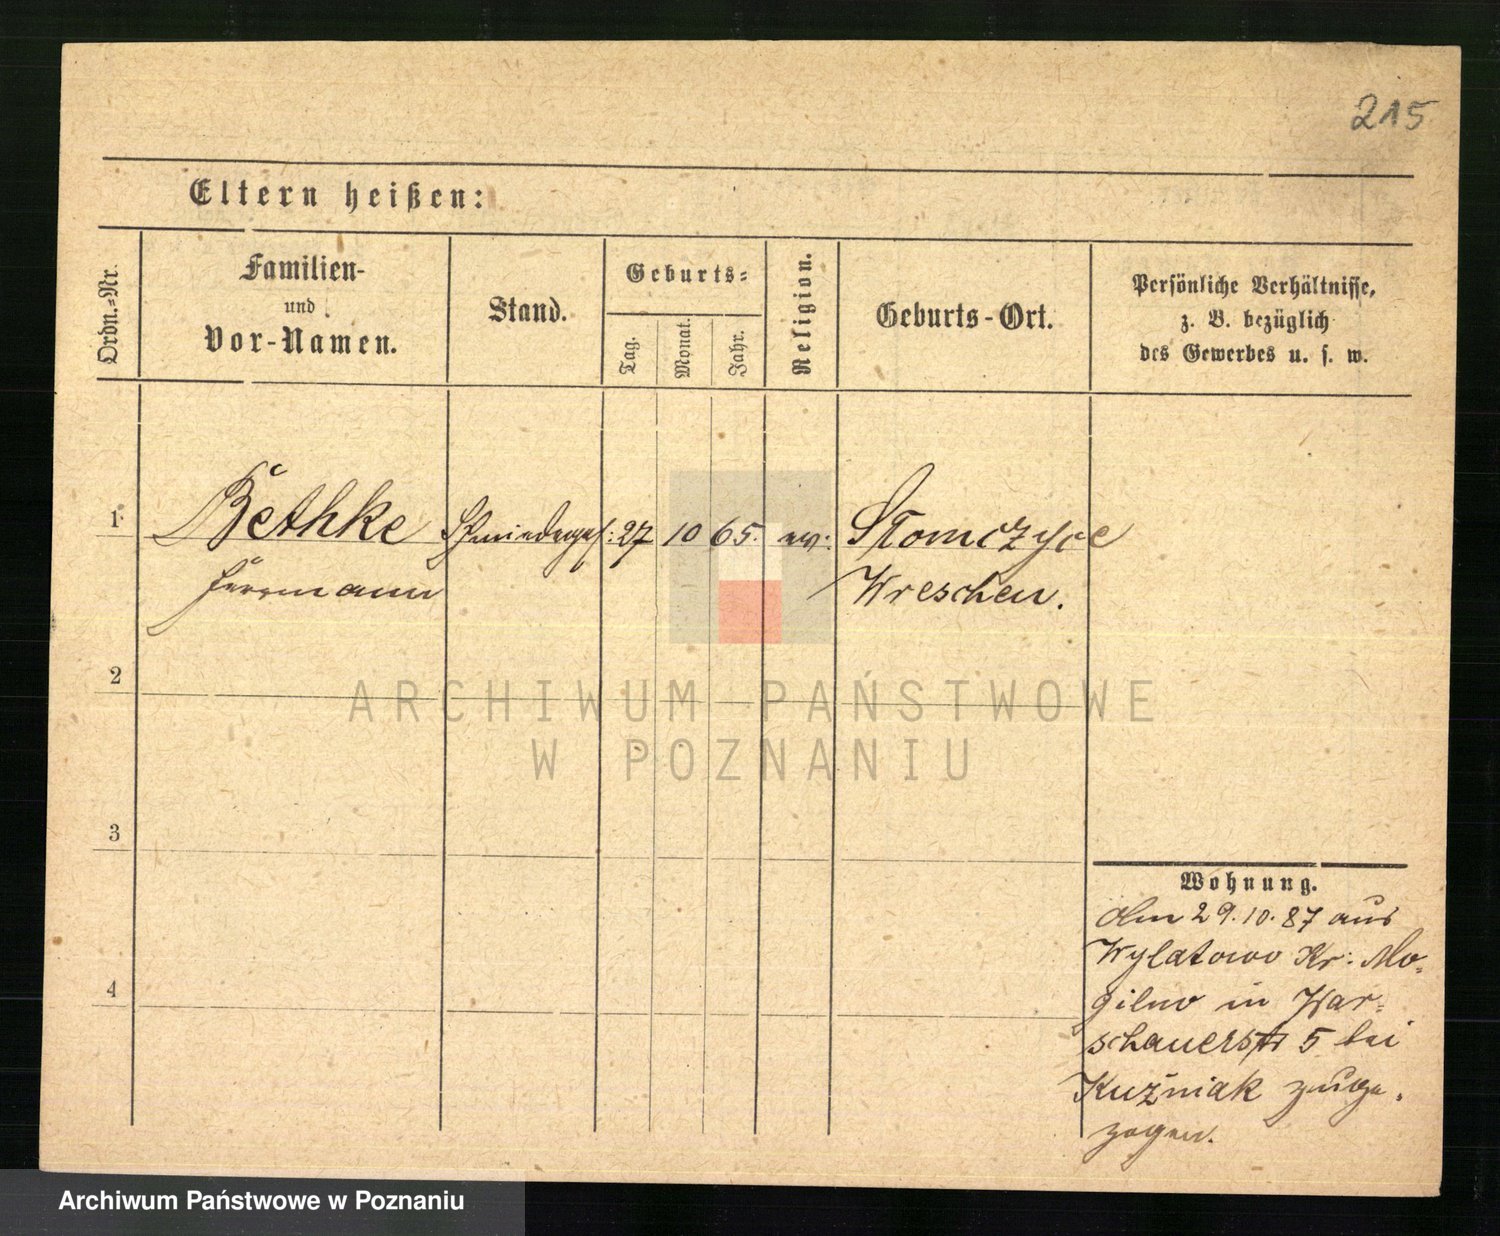 215
Eltern heißen:
Ordn.-Nr.
Familien-
und
Vor-Namen.
Stand.
Geburts-
Tag.
Monat.
Jahr.
Religion.
Geburts-Ort.
Persönliche Verhältnisse,
z. B. bezüglich
des Gewerbes u. s. w.
1 Bethke Schmiedeges: 27 10 65. ev: Stomczyce
Herrmann Wreschen.
2
ARCHIWUM PAŃSTWOWE
W POZNANIU
3
Wohnung.
Am 29.10.87 aus
Wylatowo Kr. Mo-
4
gilno in War-
schauerstr 5 bei
Kuźniak zuge-
zogen.
Archiwum Państwowe w Poznaniu